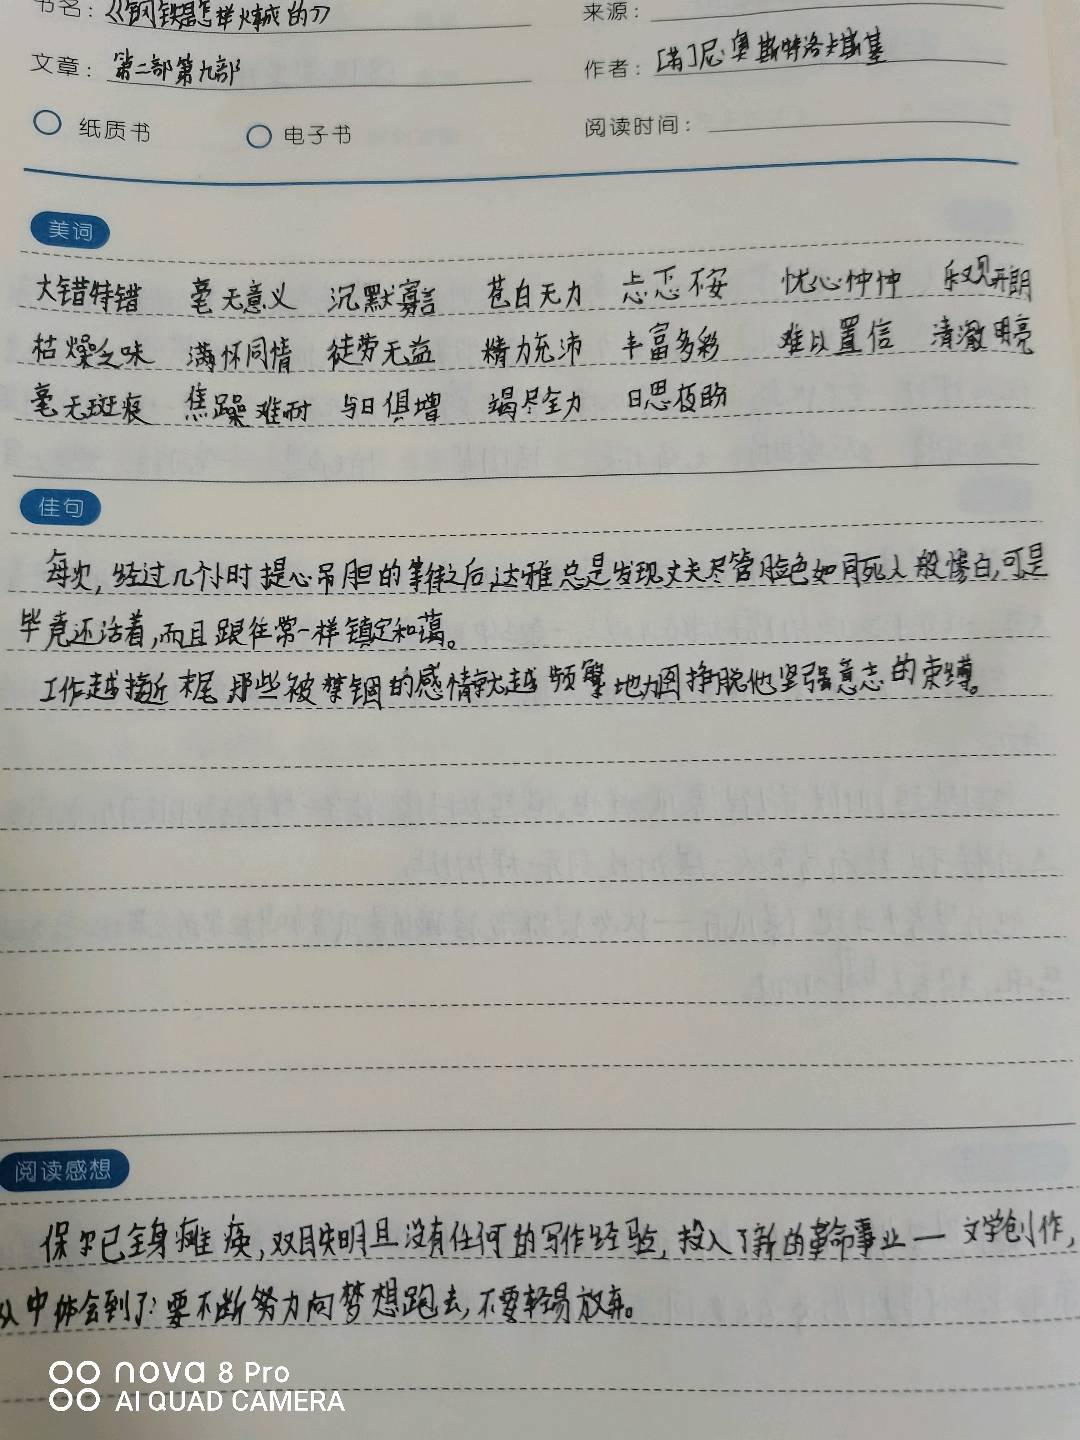 书名：《钢铁是怎样炼成的》
来源：
文章：第二部第九部
作者：[苏]尼·奥斯特洛夫斯基
纸质书 电子书 阅读时间：
美词
大错特错 毫无意义 沉默寡言 苍白无力 忐忑不安 忧心忡忡 乐观开朗
枯燥乏味 满怀同情 徒劳无益 精力充沛 丰富多彩 难以置信 清澈明亮
毫无斑痕 焦躁难耐 与日俱增 竭尽全力 日思夜盼
佳句
每次,经过几个小时提心吊胆的等待之后,达雅总是发现丈夫尽管脸色如同死人般惨白,可是
毕竟还活着,而且跟往常一样镇定和蔼。
工作越接近末尾,那些被禁锢的感情就越频繁地力图挣脱他坚强意志的束缚。
阅读感想
保尔已全身瘫痪,双目失明且没有任何的写作经验,投入了新的革命事业—文学创作,
从中体会到了:要不断努力向梦想跑去,不要轻易放弃。
nova 8 Pro
AI QUAD CAMERA